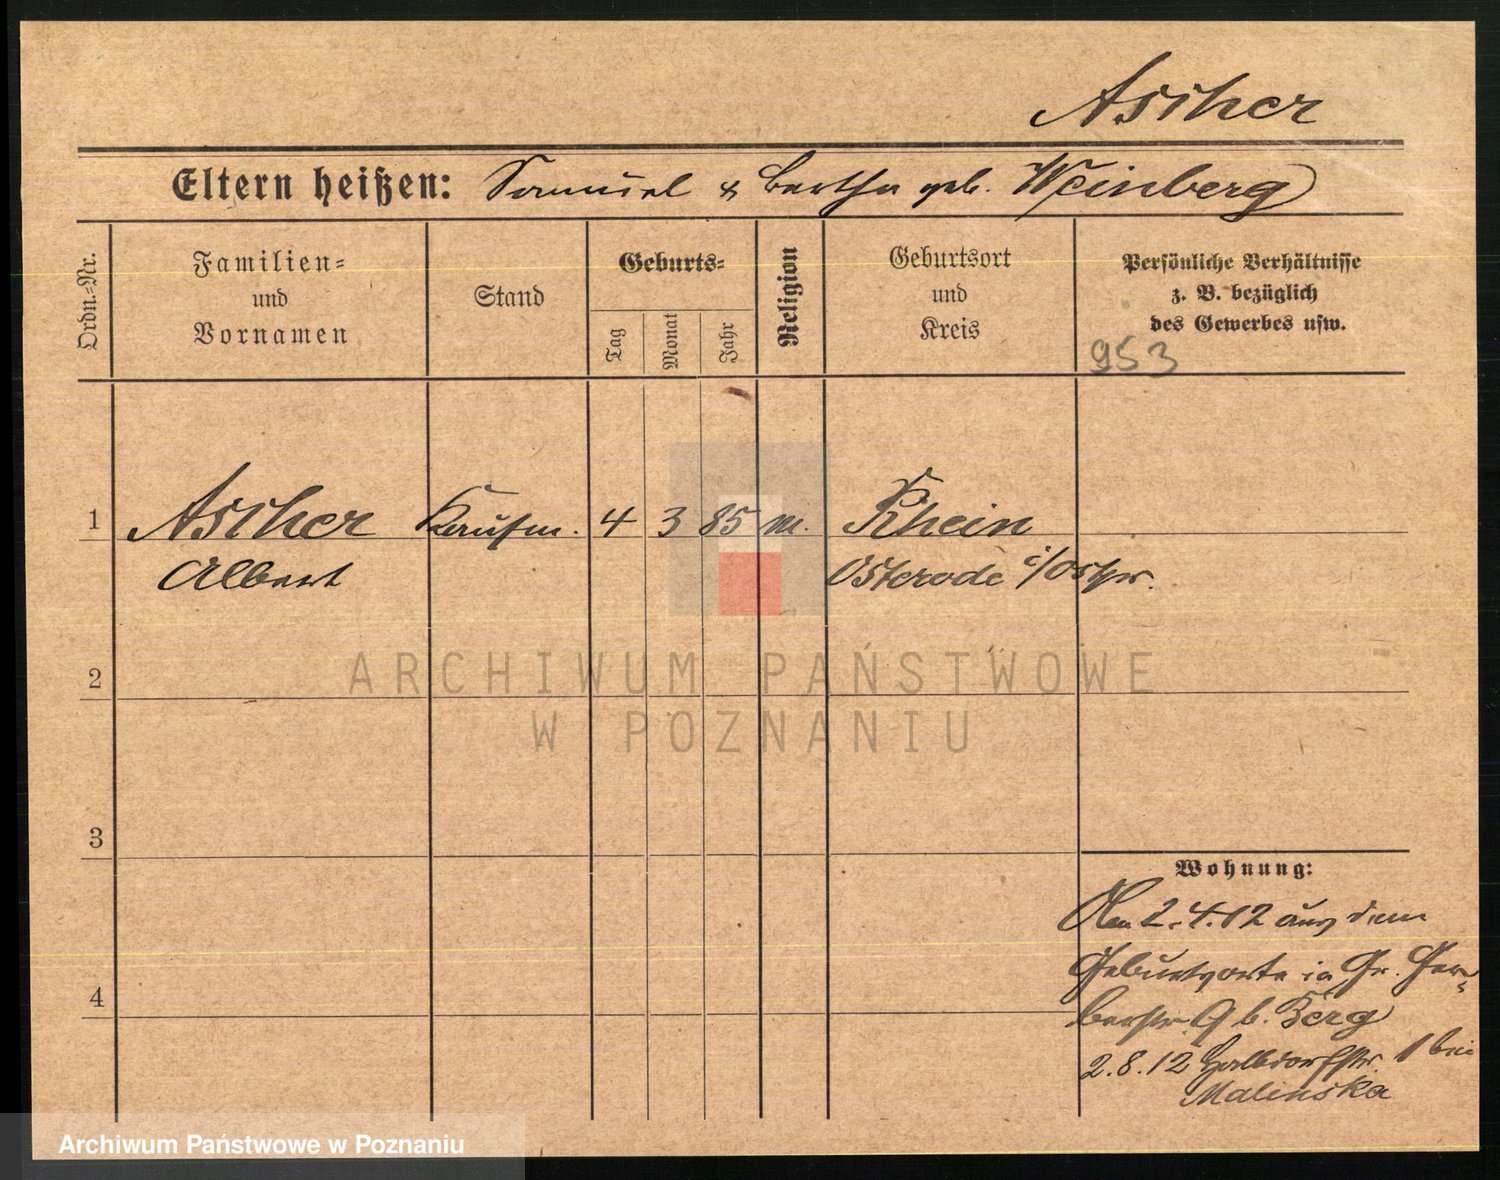 Ascher
Eltern heißen: Samuel & Bertha geb. Weinberg
Ordn.-Nr.
Familien-
und
Vornamen
Stand
Geburts-
Tag
Monat
Jahr
Religion
Geburtsort
und
Kreis
Persönliche Verhältnisse
z. B. bezüglich
des Gewerbes usw.
953
1 Ascher Kaufm. 4 3 85 m. Rhein
Albert Osterode i/Ostpr.
2
ARCHIWUM PAŃSTWOWE
W POZNANIU
3
Wohnung:
2.4.12 aus dem
Geburtsorte in Gr. Ger-
4
berstr. 9 b. Berg
2.8.12 Halbdorfstr. 1 bei
Malinska
Archiwum Państwowe w Poznaniu